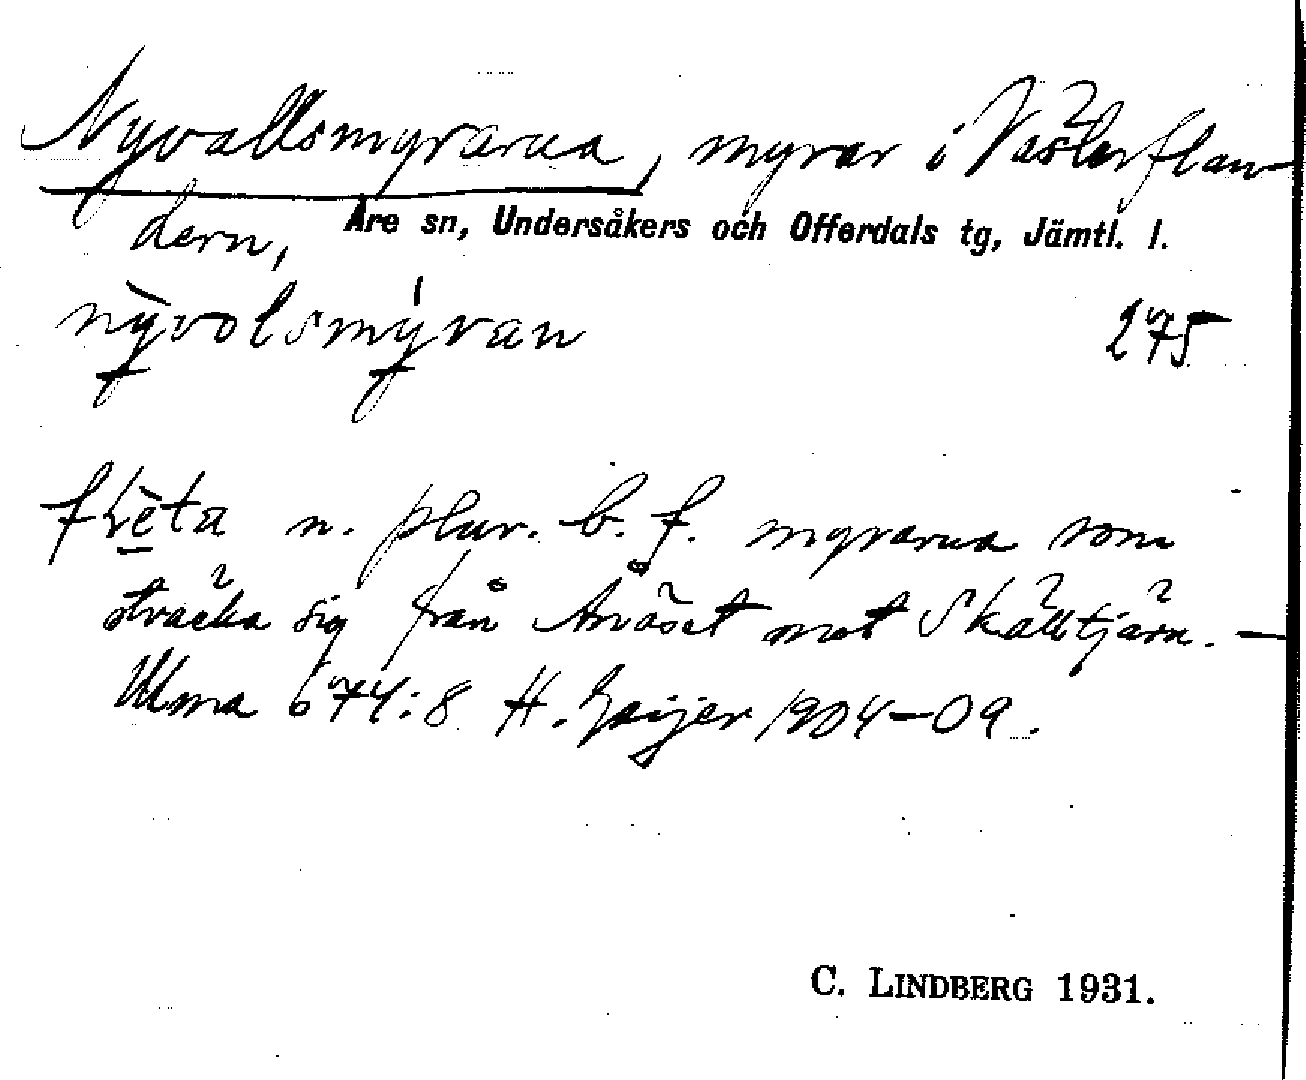 Nyvallsmyrarna, myrar i Västerflan-
dern, Åre sn, Undersåkers och Offerdals tg, Jämtl. l.
nỳvolsmýran 275
flèta n. plur. b. f. myrarna som
sträcka sig från Anäset mot Skälltjärn. —
Ulma 674:8 H. Geijer 1904–09.
C. LINDBERG 1931.